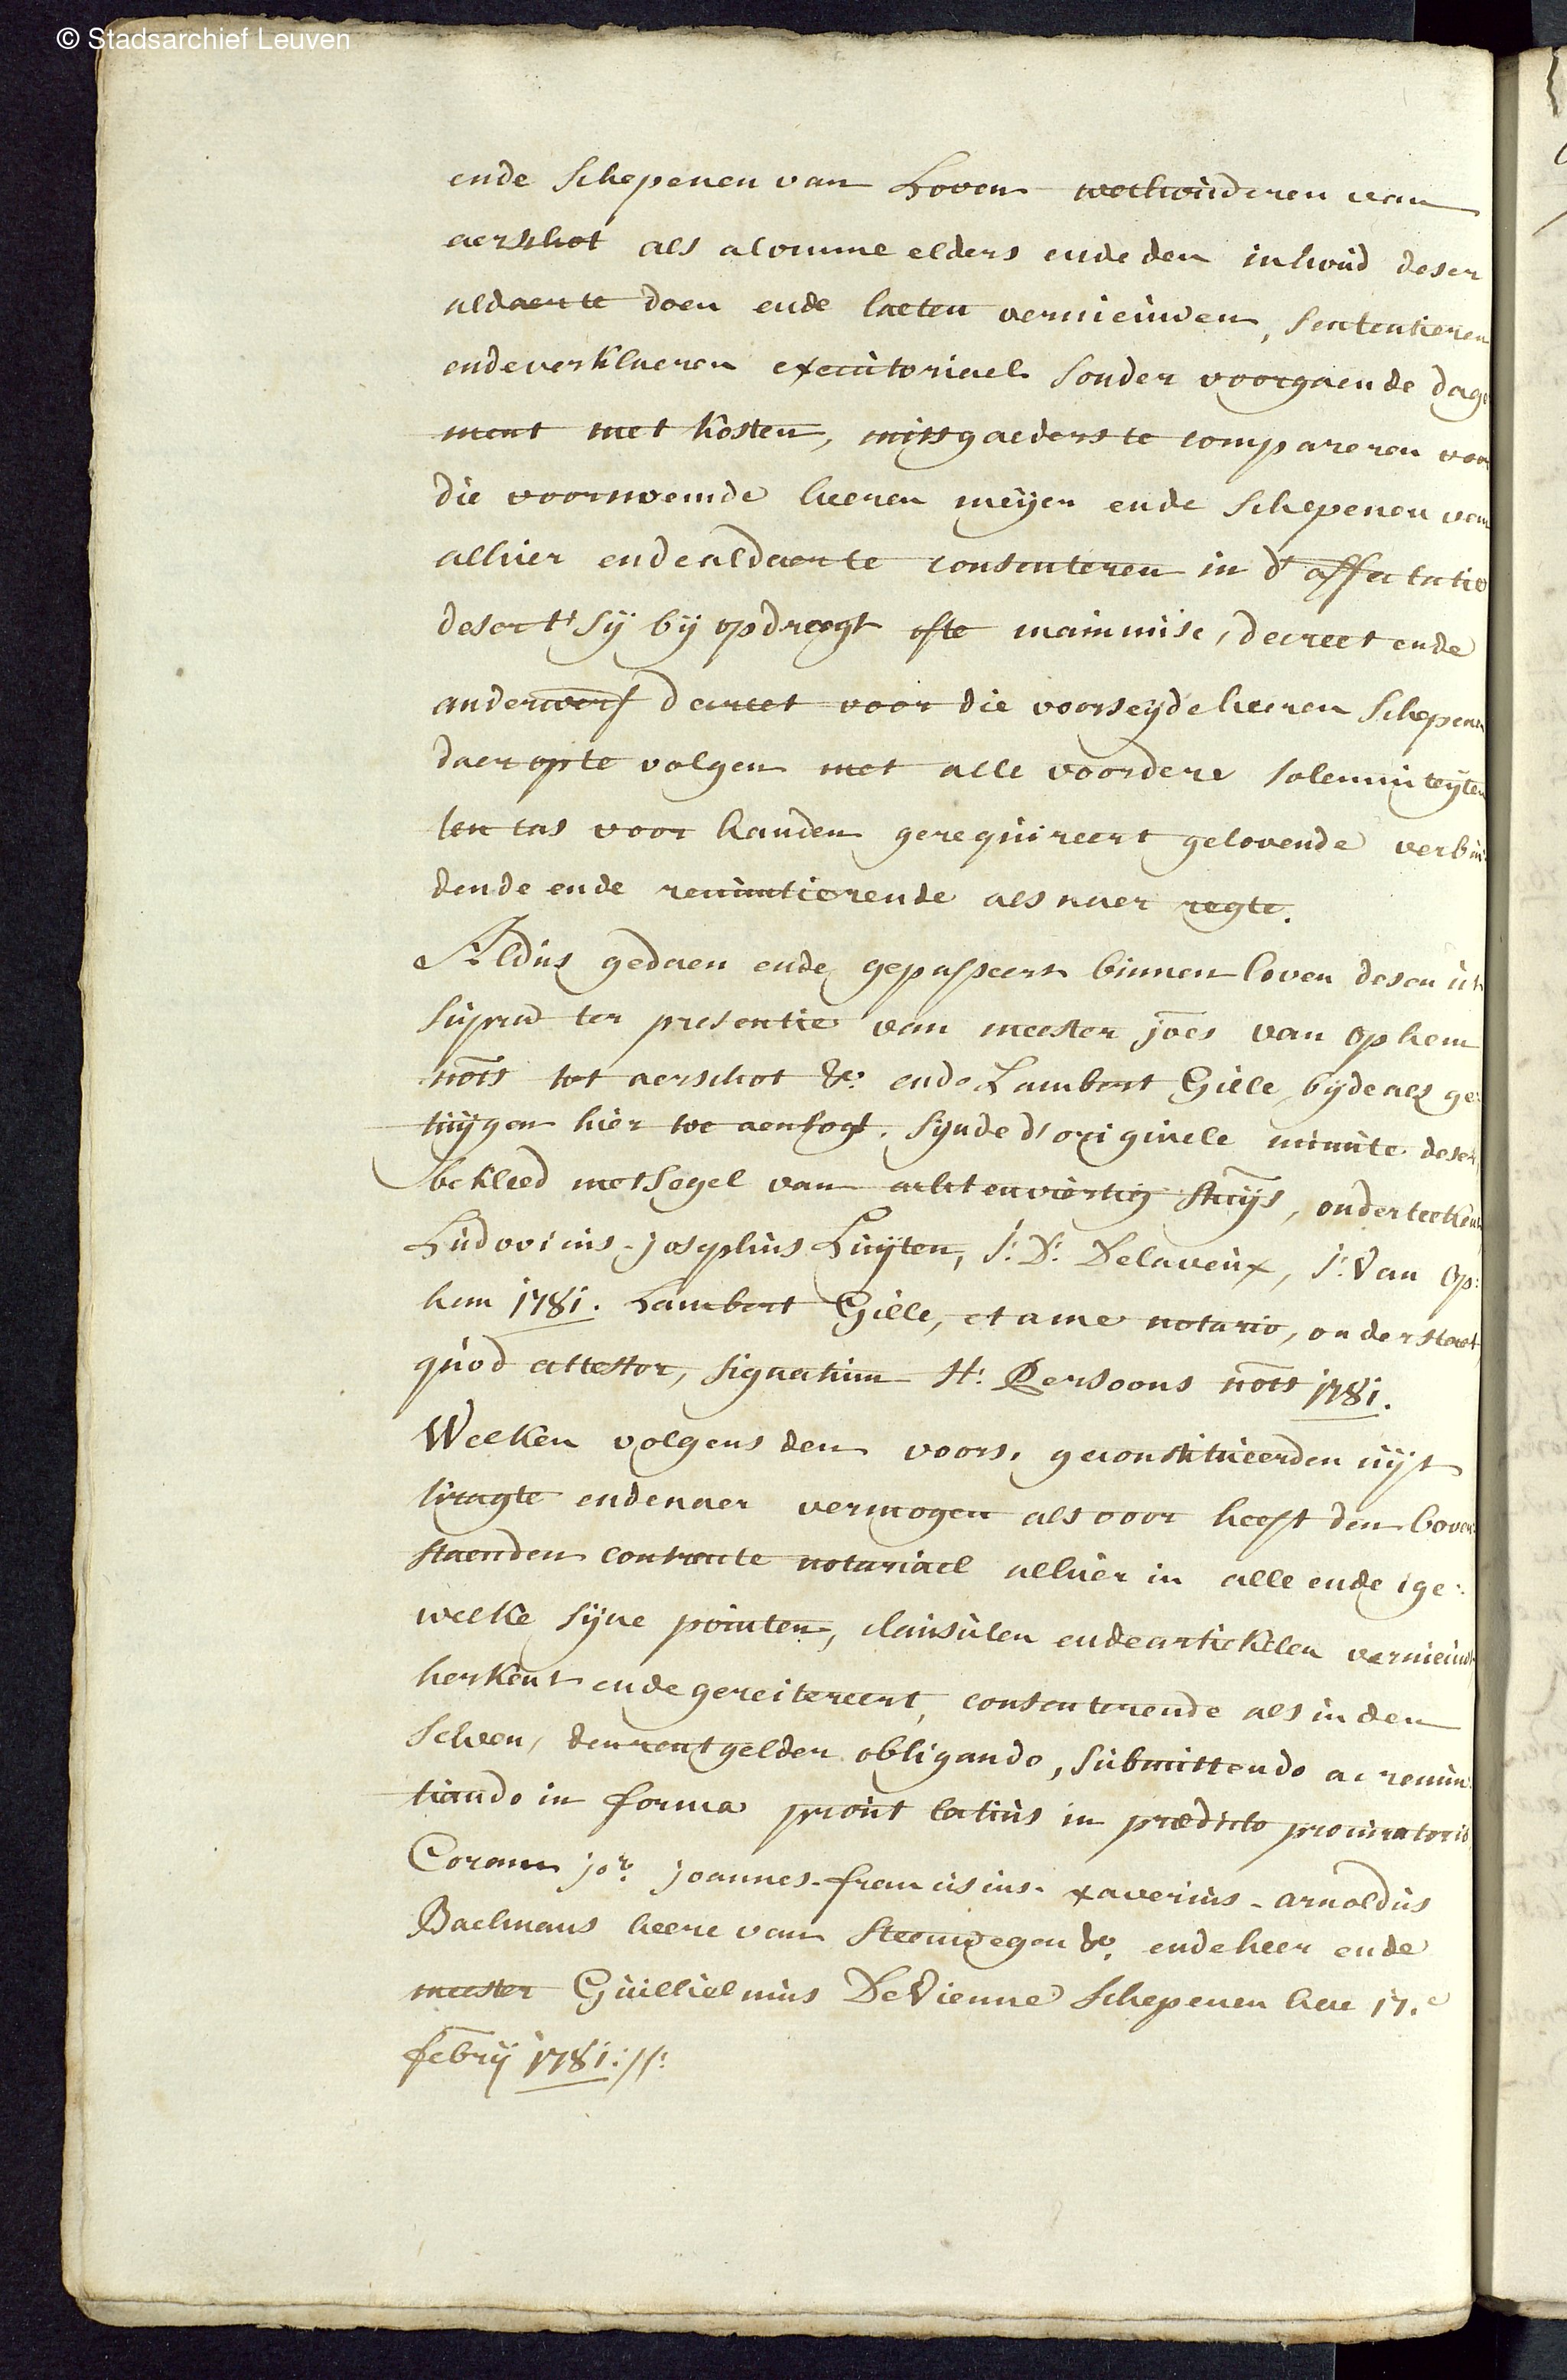 © Stadsarchief Leuven
ende schepenen van Loven wethouderen van
aerschot als alomme elders ende den inhoud deser
aldaer te doen ende laeten vernieuwen, sententieren
ende verklaeren executoriael sonder voorgaende dage
ment met kosten, mitsgaeders te compareren voor
die voornoemde heeren meÿer ende schepenen van
alhier ende aldaer te consenteren in d'affectatie
deser t'sÿ bÿ opdragt ofte mainmise, decreet ende
anderwerf decreet voor die voorseÿde heeren schepenen
daer op te volgen met alle voordere solemniteÿten
ten cas voor handen gerequireert gelovende verbin
dende ende renuntierende als naer regte.
Aldus gedaen ende gepasseert binnen loven desen ut
supra ter presentie van meester joes van ophem
nots tot aerschot &c: ende Lambert Gille bÿde als ge:
tuÿgen hier toe aensogt. sÿnde d'originele minute deser
bekleed met segel van achtenviertig stuÿs, onderteekent
Ludovicus-josephus Luÿten, J: D: Delaveux, J: Van Op:
hem 1781. Lambert Gille, et a me notario, onderstaet
quod attestor, signatum H: Persoons nots 1781.
Welken volgens den voors. geconstitueerden uÿt
kragte ende naer vermogen als voor heeft den boven
staenden contracte notariael alhier in alle ende ige:
welke sÿne pointen, clausulen ende artiekelen vernieuwt
herkent ende gereitereert, consenterende als in den
selven, den rentgelder obligando, submittendo ac renun:
tiando in forma prout latius in prædicto procuratorio
Coram jor. joannes-franciscus-xaverius-arnoldus
Baelmans heere van Steenwegen &c. ende heer ende
meester Guillielmus De Vienne schepenen hac 17.e
febrÿ 1781://: